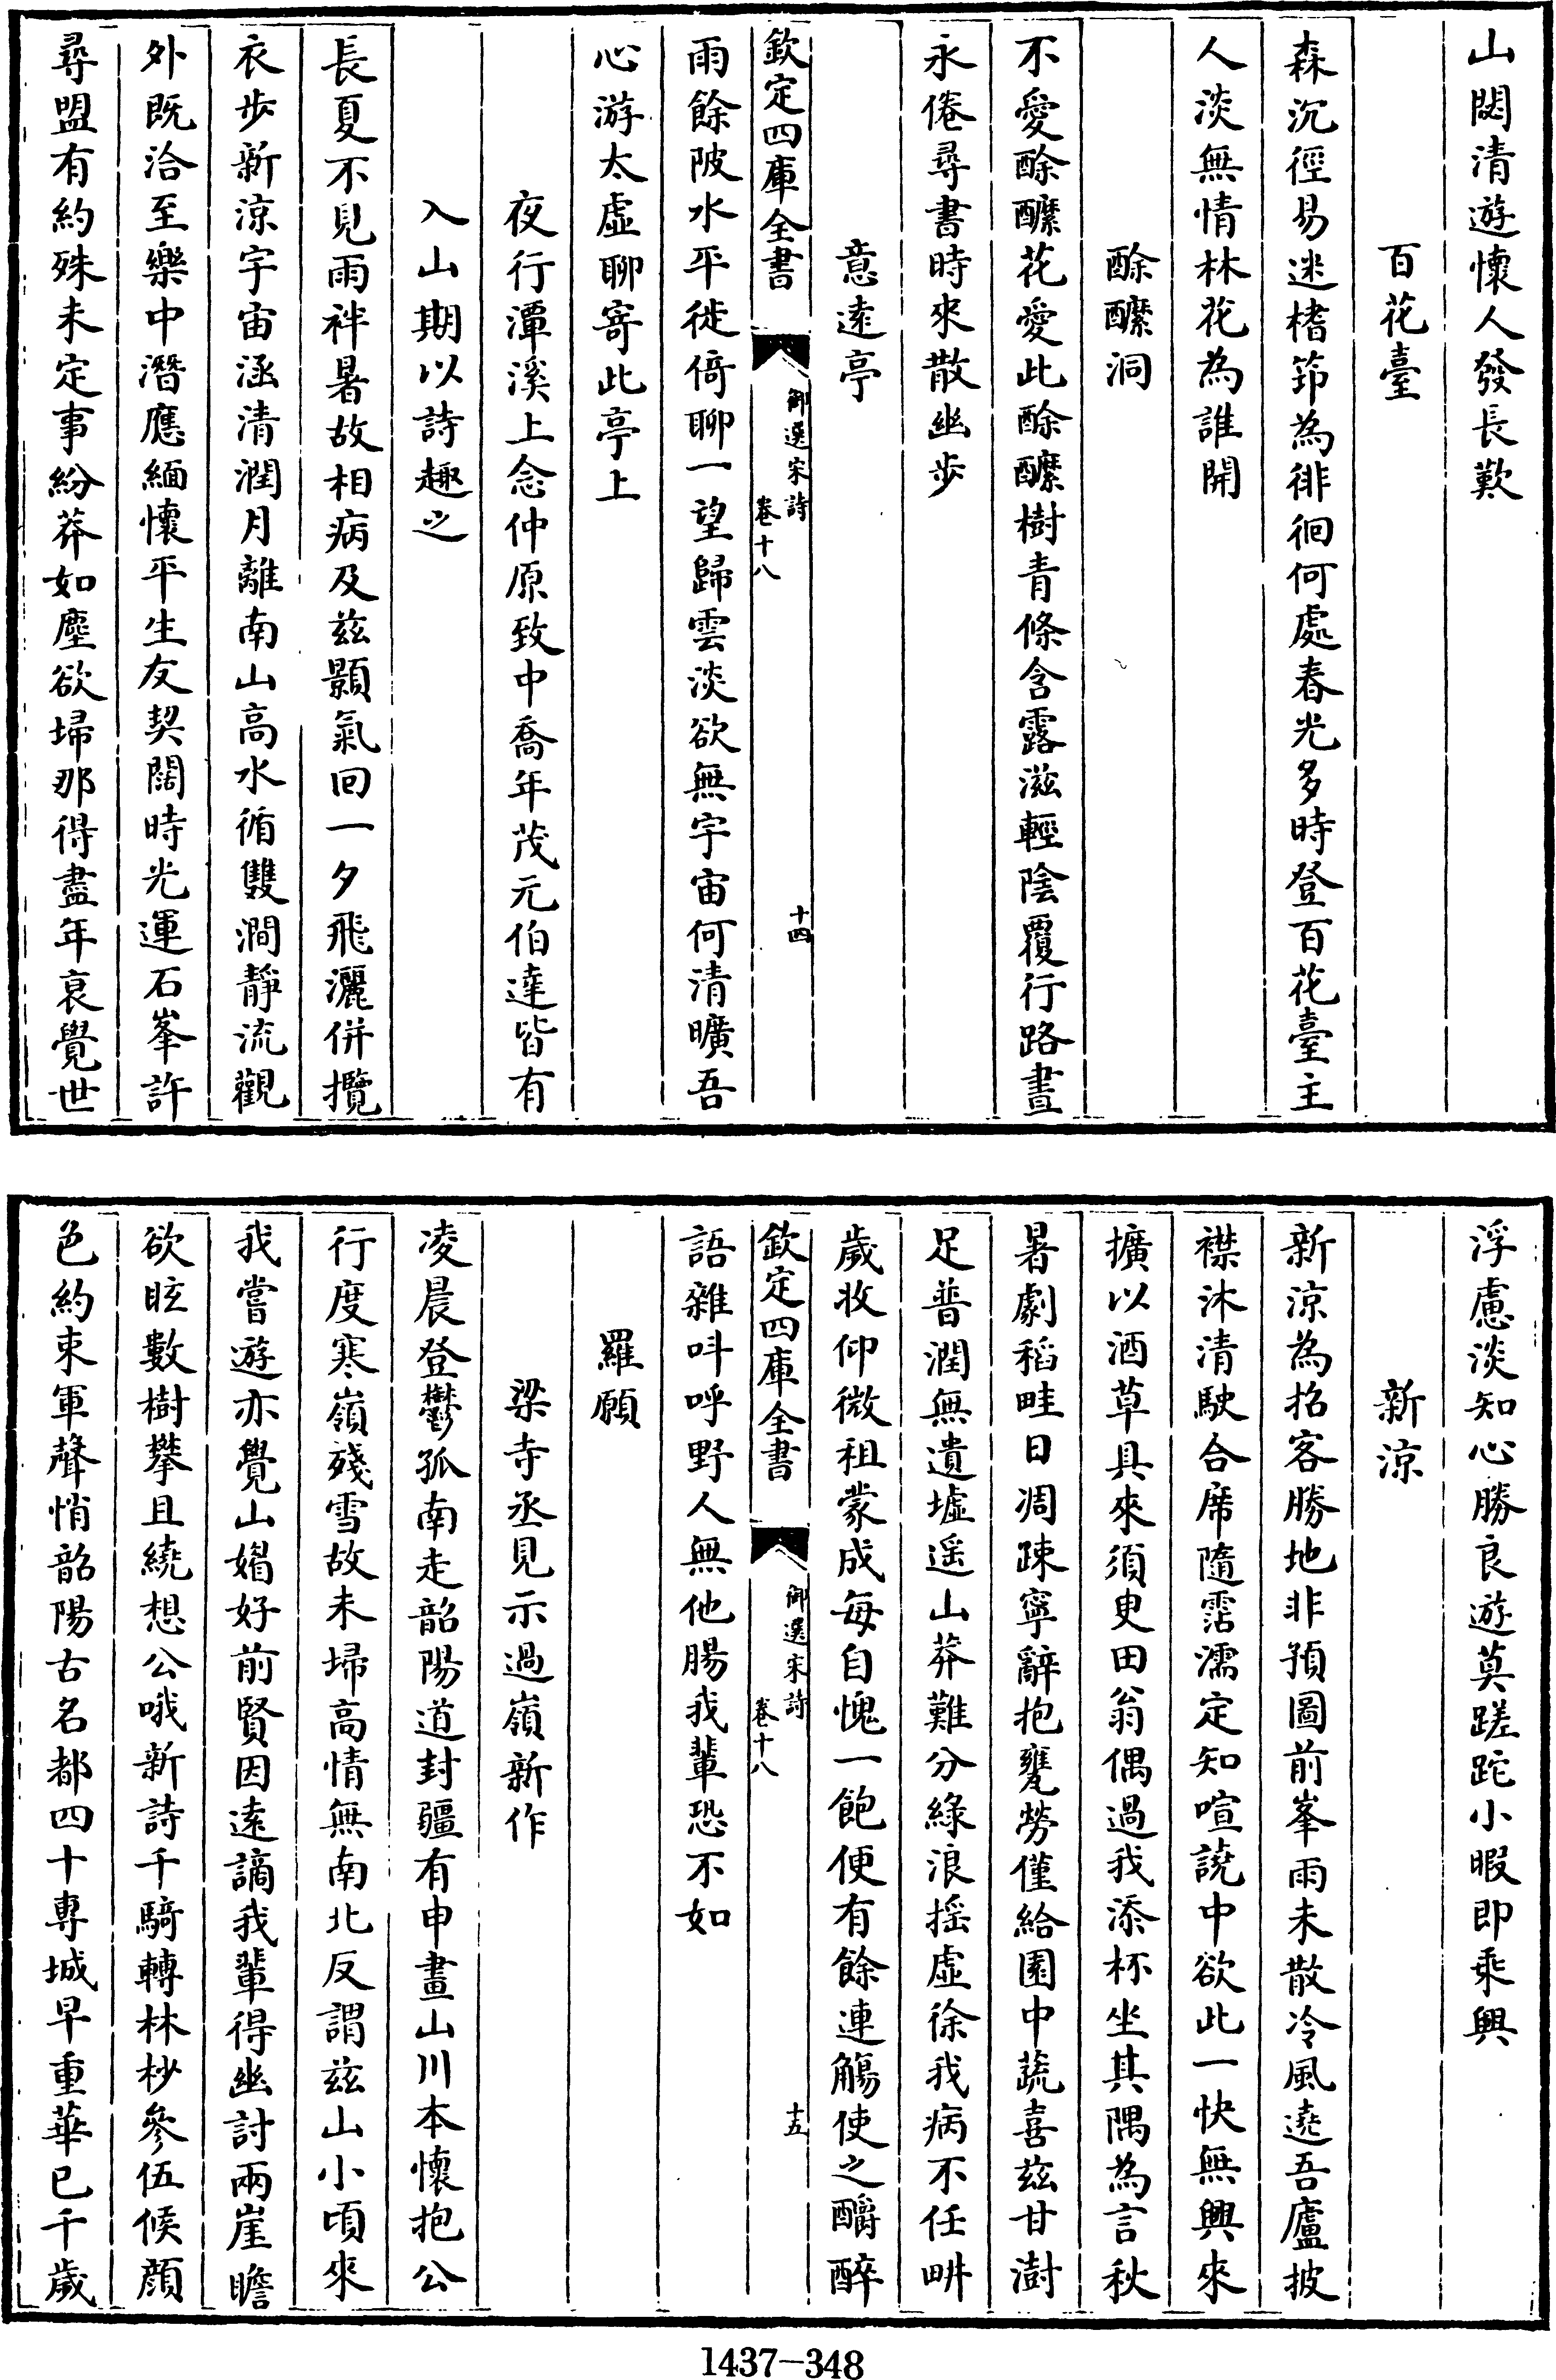 山閟清遊懷人發長歎
百花臺
森沉徑易迷㮰筇為徘徊何處春光多時登百花臺主
人淡無情林花為誰開
酴醾洞
不愛酴醾花愛此酴醾樹青條含露滋輕陰覆行路晝
永倦尋書時來散幽步
意遠亭
欽定四庫全書
御選宋詩
卷十八
十四
雨餘陂水平徙倚聊一望歸雲淡欲無宇宙何清曠吾
心游太虛聊寄此亭上
夜行潭溪上念仲原致中喬年茂元伯達皆有
入山期以詩趣之
長夏不見雨袢暑故相病及兹顥氣回一夕飛灑併攬
衣步新涼宇宙涵清潤月離南山高水循雙澗靜流觀
外既洽至樂中潛應緬懷平生友契闊時光運石峯許
尋盟有約殊未定事紛莽如塵欲埽那得盡年衰覺世
浮慮淡知心勝良遊莫蹉跎小暇即乘興
新涼
新涼為招客勝地非預圖前峯雨未散冷風遶吾廬披
襟沐清駛合席隨霑濡定知喧譊中欲此一快無興來
擴以酒草具來須臾田翁偶過我添杯坐其隅為言秋
暑劇稻畦日凋疎寧辭抱甕勞僅給園中蔬喜兹甘澍
足普潤無遺墟遥山莽難分綠浪摇虛徐我病不任畊
歲收仰微租蒙成每自愧一飽便有餘連觴使之釂醉
欽定四庫全書
御選宋詩
卷十八
十五
語雜呌呼野人無他腸我輩恐不如
羅願
梁寺丞見示過嶺新作
凌晨登鬱孤南走韶陽道封疆有申畫山川本懷抱公
行度寒嶺殘雪故未埽高情無南北反謂兹山小頃來
我嘗遊亦覺山媚好前賢因遠謫我輩得幽討兩崖瞻
欲眩數樹攀且繞想公哦新詩千騎轉林杪參伍候顔
色約束軍聲悄韶陽古名都四十專城早重華已千歲
1437-348